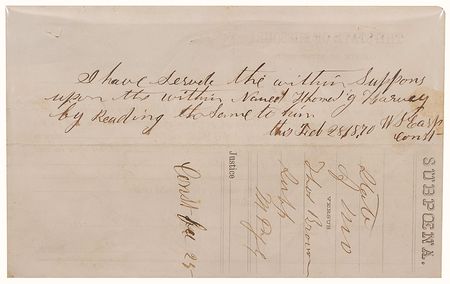 I have Served the within Suppons
upon the within Named Thomas G Harvey
by Reading the Same to him
this Feb 28 1870 W S Earp
Const
SUBPOENA.
State
of Mo
VERSUS
Thos Brown
Justice
Const fee 25